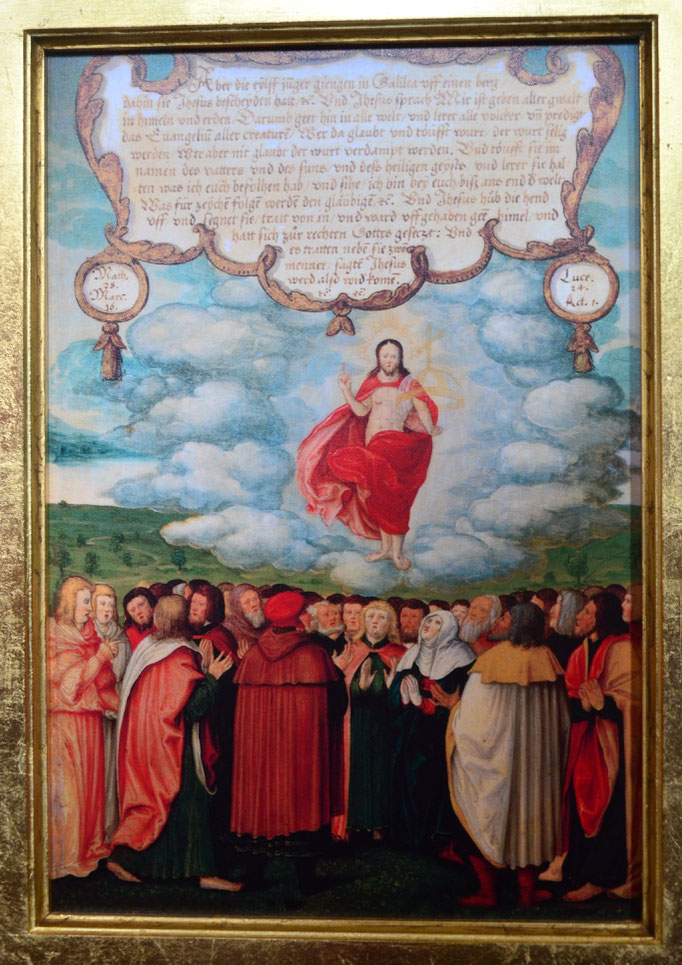 Aber die eÿlff junger giengen in Galilea uff einen berg
dahin sie Jhesus bescheyden hatt, ꝛc. Und Jhesus sprach Mir ist geben aller gwalt
in himeln und erden, Darumb gett hin in alle welt, und lerer alle völcker, uñ predigt
das Evangeliũ aller creaturẽ. Wer da glaubt und töufft wurt, der wurt sēlig
werden, Wer aber nit glaubt der wurt verdampt werden. Und töuffẽ sie im
namen des vatters und des suns, und deß heiligen geystes, und lerer sie hal
ten was ich euch befolhen hab, und sihe, ich bin bey euch biß ans end d̄ welt.
Was für zeychẽ folgẽ werdẽ den gläubigẽ ꝛc. Und Jhesus hůb die hend
uff und segnet sie, tratt von in, und ward uffgehaben gẽ himel, und
hatt sich zůr rechten Gottes gesetzt: Und
es tratten nebẽ sie zwee
menner, sagtẽ Jhesus
werd also wid komẽ.
ꝛc. ꝛc.
Math.
28.
Marc.
16.
Luce.
24.
Act. 1.